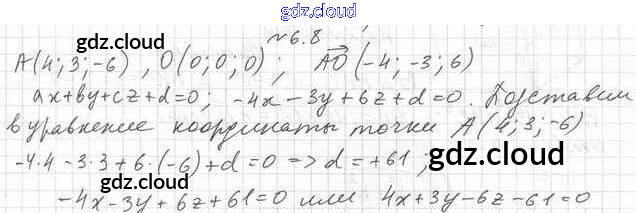 gdz.cloud
№6.8
A(4; 3; -6), O(0; 0; 0); AO(-4; -3; 6)
gdz.cloud gdz.cloud
ax+by+cz+d=0; -4x-3y+6z+d=0. Подставим
в уравнение координаты точки A(4; 3; -6)
-4·4-3·3+6·(-6)+d=0 => d=+61;
gdz.cloud gdz.cloud
-4x-3y+6z+61=0 или 4x+3y-6z-61=0